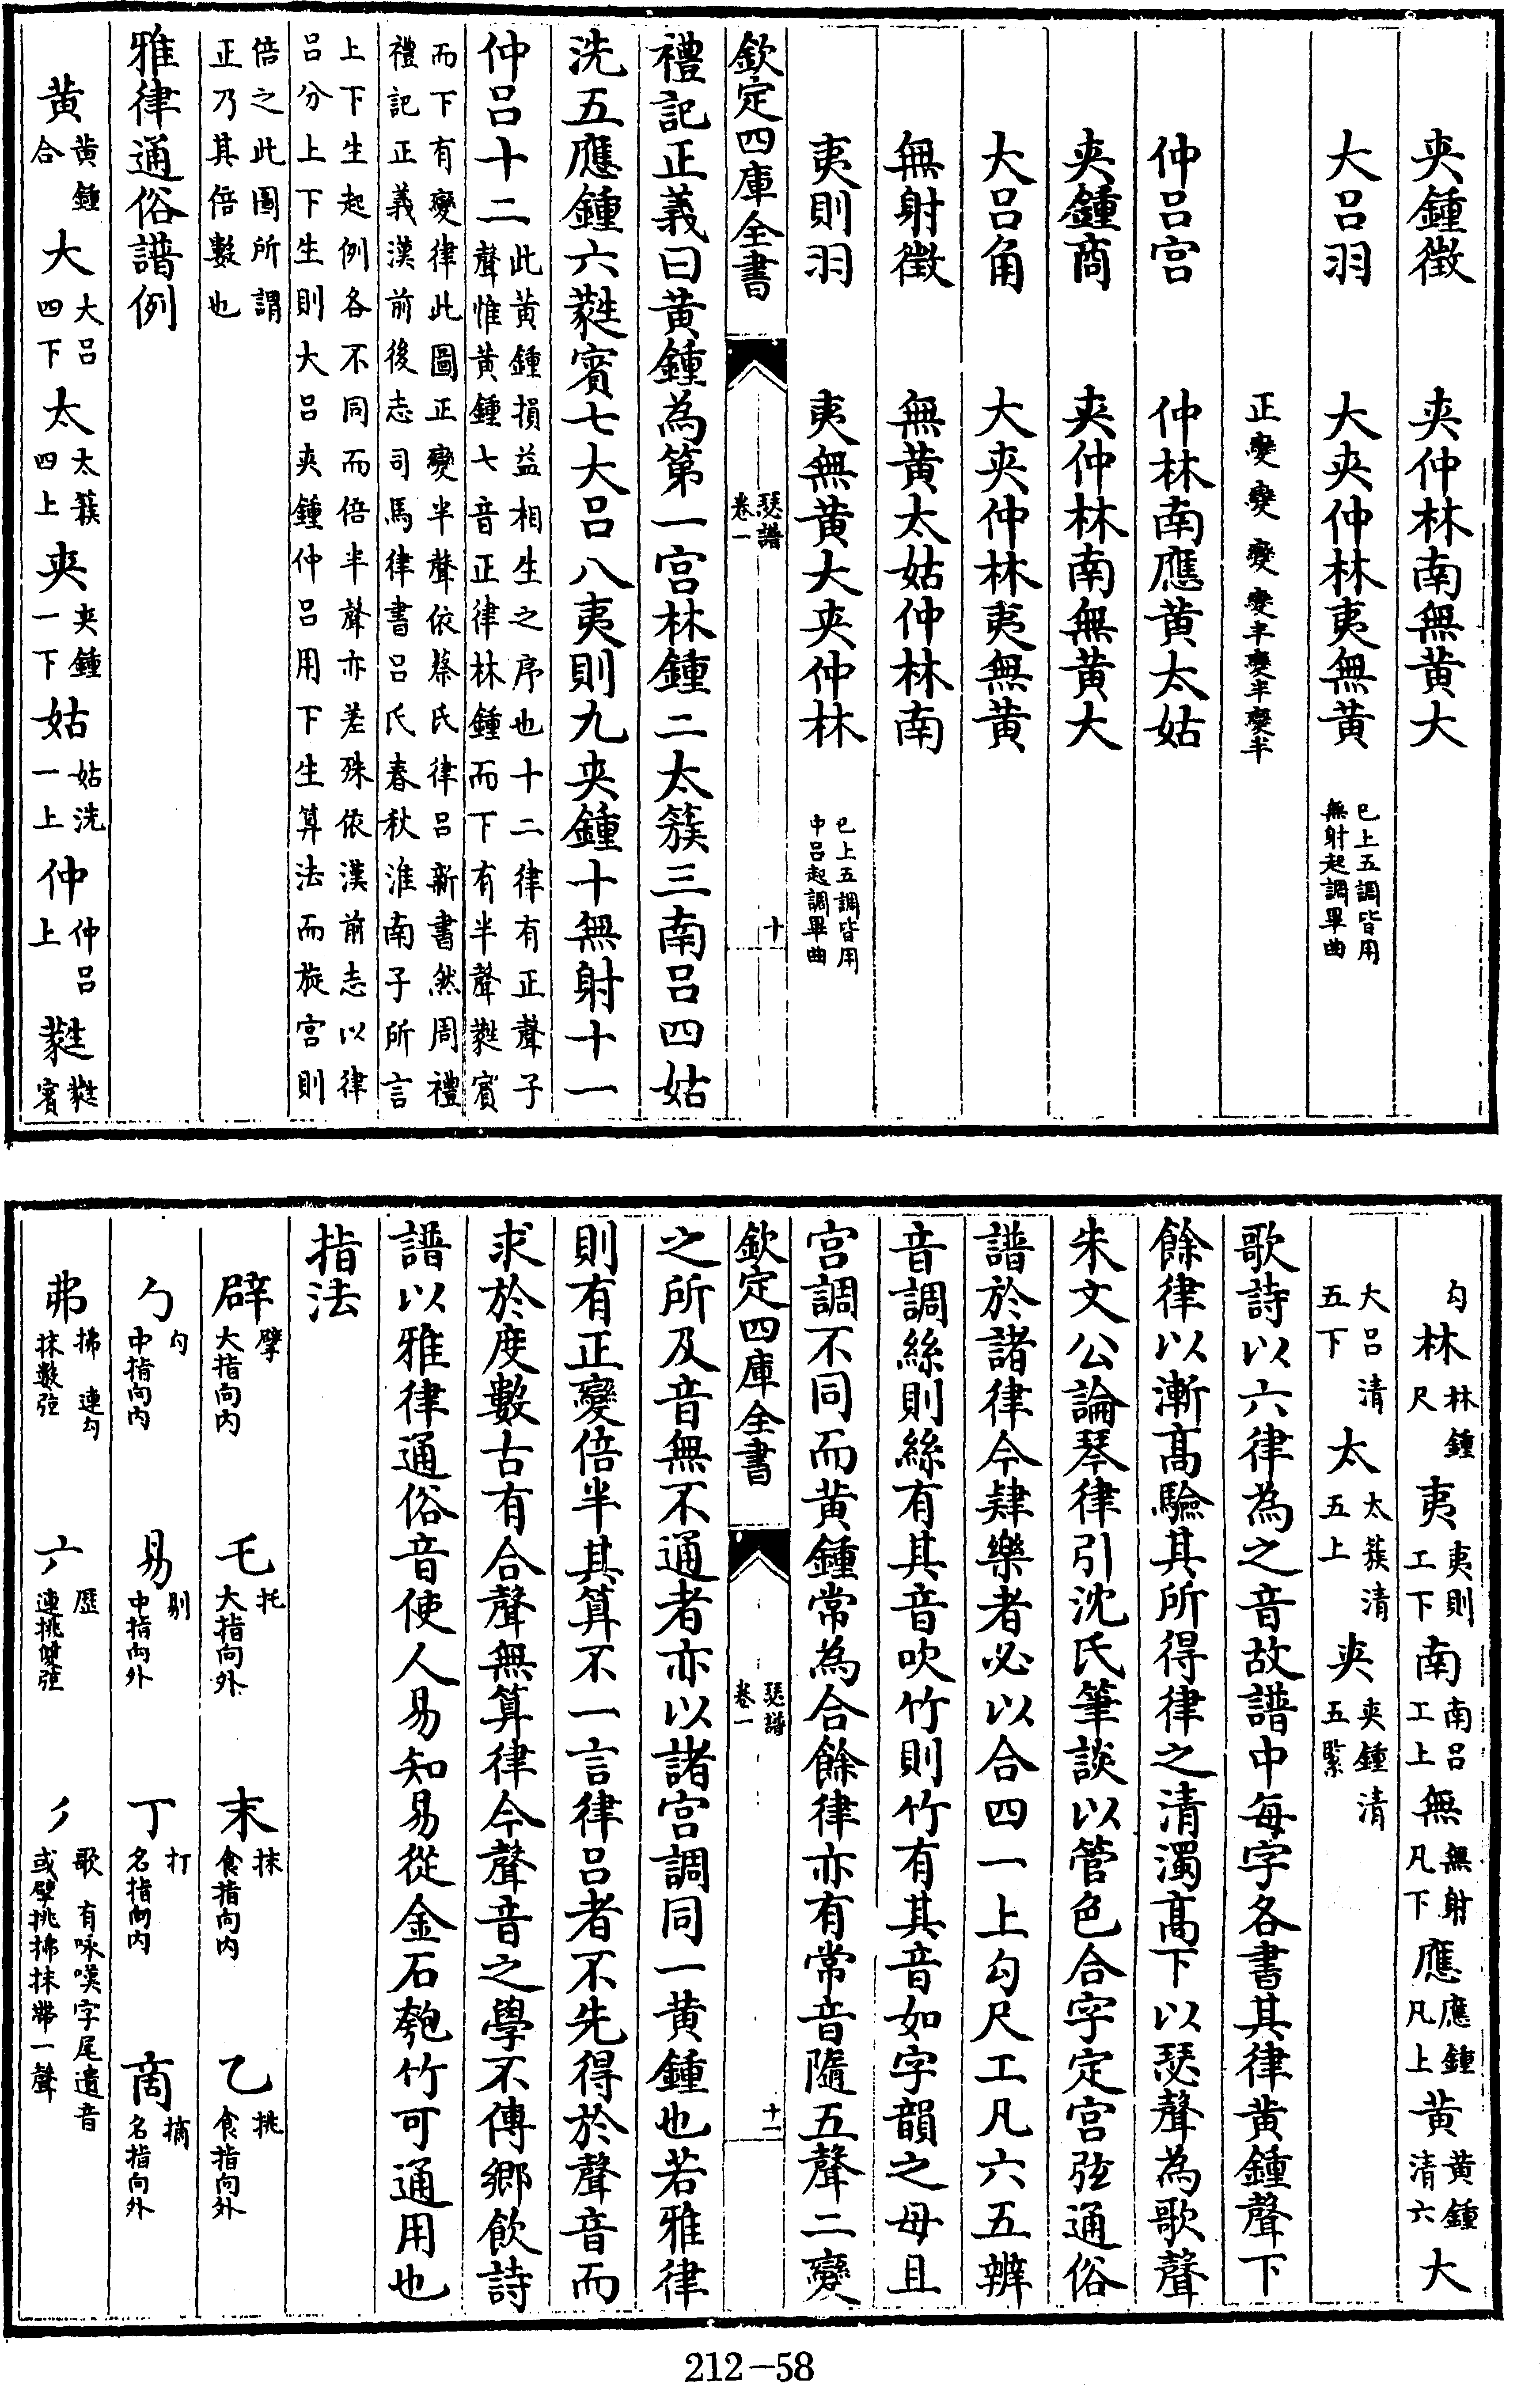 夾鍾徵　夾仲林南無黃大
大呂羽　大夾仲林夷無黃　已上五調皆用無射起調畢曲
正變變變變半變半變半
仲呂宮　仲林南應黃太姑
夾鍾商　夾仲林南無黃大
大呂角　大夾仲林夷無黃
無射徵　無黃太姑仲林南
夷則羽　夷無黃大夾仲林　已上五調皆用中呂起調畢曲
欽定四庫全書　瑟譜卷一　十
禮記正義曰黃鍾為第一宮林鍾二太簇三南呂四姑
洗五應鍾六蕤賓七大呂八夷則九夾鍾十無射十一
仲呂十二此黃鍾損益相生之序也十二律有正聲子
聲惟黃鍾七音正律林鍾而下有半聲蕤賓
而下有變律此圖正變半聲依蔡氏律呂新書然周禮
禮記正義漢前後志司馬律書呂氏春秋淮南子所言
上下生起例各不同而倍半聲亦差殊依漢前志以律
呂分上下生則大呂夾鍾仲呂用下生算法而旋宮則
倍之此圖所謂
正乃其倍數也
雅律通俗譜例
黃黃鍾合　大大呂四下　太太簇四上　夾夾鍾一下　姑姑洗一上　仲仲呂上　蕤蕤賓
勾　林林鍾尺　夷夷則工下　南南呂工上　無無射凡下　應應鍾凡上　黃黃鍾清六　大
大呂清五下　太太簇清五上　夾夾鍾清五緊
歌詩以六律為之音故譜中每字各書其律黃鍾聲下
餘律以漸高驗其所得律之清濁高下以瑟聲為歌聲
朱文公論琴律引沈氏筆談以管色合字定宮弦通俗
譜於諸律今肄樂者必以合四一上勾尺工凡六五辨
音調絲則絲有其音吹竹則竹有其音如字韻之母且
宮調不同而黃鍾常為合餘律亦有常音隨五聲二變
欽定四庫全書　瑟譜卷一　十一
之所及音無不通者亦以諸宮調同一黃鍾也若雅律
則有正變倍半其算不一言律呂者不先得於聲音而
求於度數古有合聲無算律今聲音之學不傳鄉飲詩
譜以雅律通俗音使人易知易從金石匏竹可通用也
指法
辟擘大指向內　乇托大指向外　末抹食指向內　乙挑食指向外
勹勾中指向內　易剔中指向外　丁打名指向內　啇摘名指向外
弗拂　連勾抹數弦　歷連挑雙弦　歌　有咏嘆字尾遺音或擘挑拂抹帶一聲
212-58